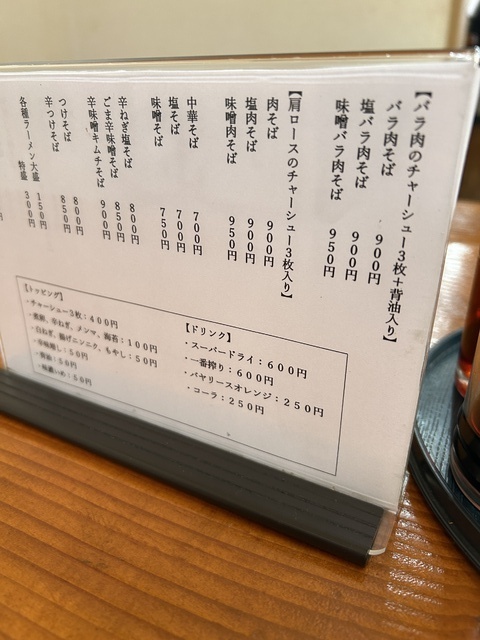 【バラ肉のチャーシュー3枚+背油入り】
バラ肉そば 900円
塩バラ肉そば 900円
味噌バラ肉そば 950円
【肩ロースのチャーシュー3枚入り】
肉そば 900円
塩肉そば 900円
味噌肉そば 950円
中華そば 700円
塩そば 700円
味噌そば 750円
辛ねぎ塩そば 800円
ごま辛味噌そば 850円
辛味噌キムチそば 900円
つけそば 800円
辛つけそば 850円
各種ラーメン大盛 150円
特盛 300円
【ドリンク】
・スーパードライ：600円
・一番搾り：600円
・バヤリースオレンジ：250円
・コーラ：250円
【トッピング】
・チャーシュー3枚：400円
・煮玉、辛ねぎ、メンマ、海苔：100円
・白ねぎ、揚げニンニク、もやし：50円
・辛味噌：50円
・背油：50円
・味濃いめ：50円